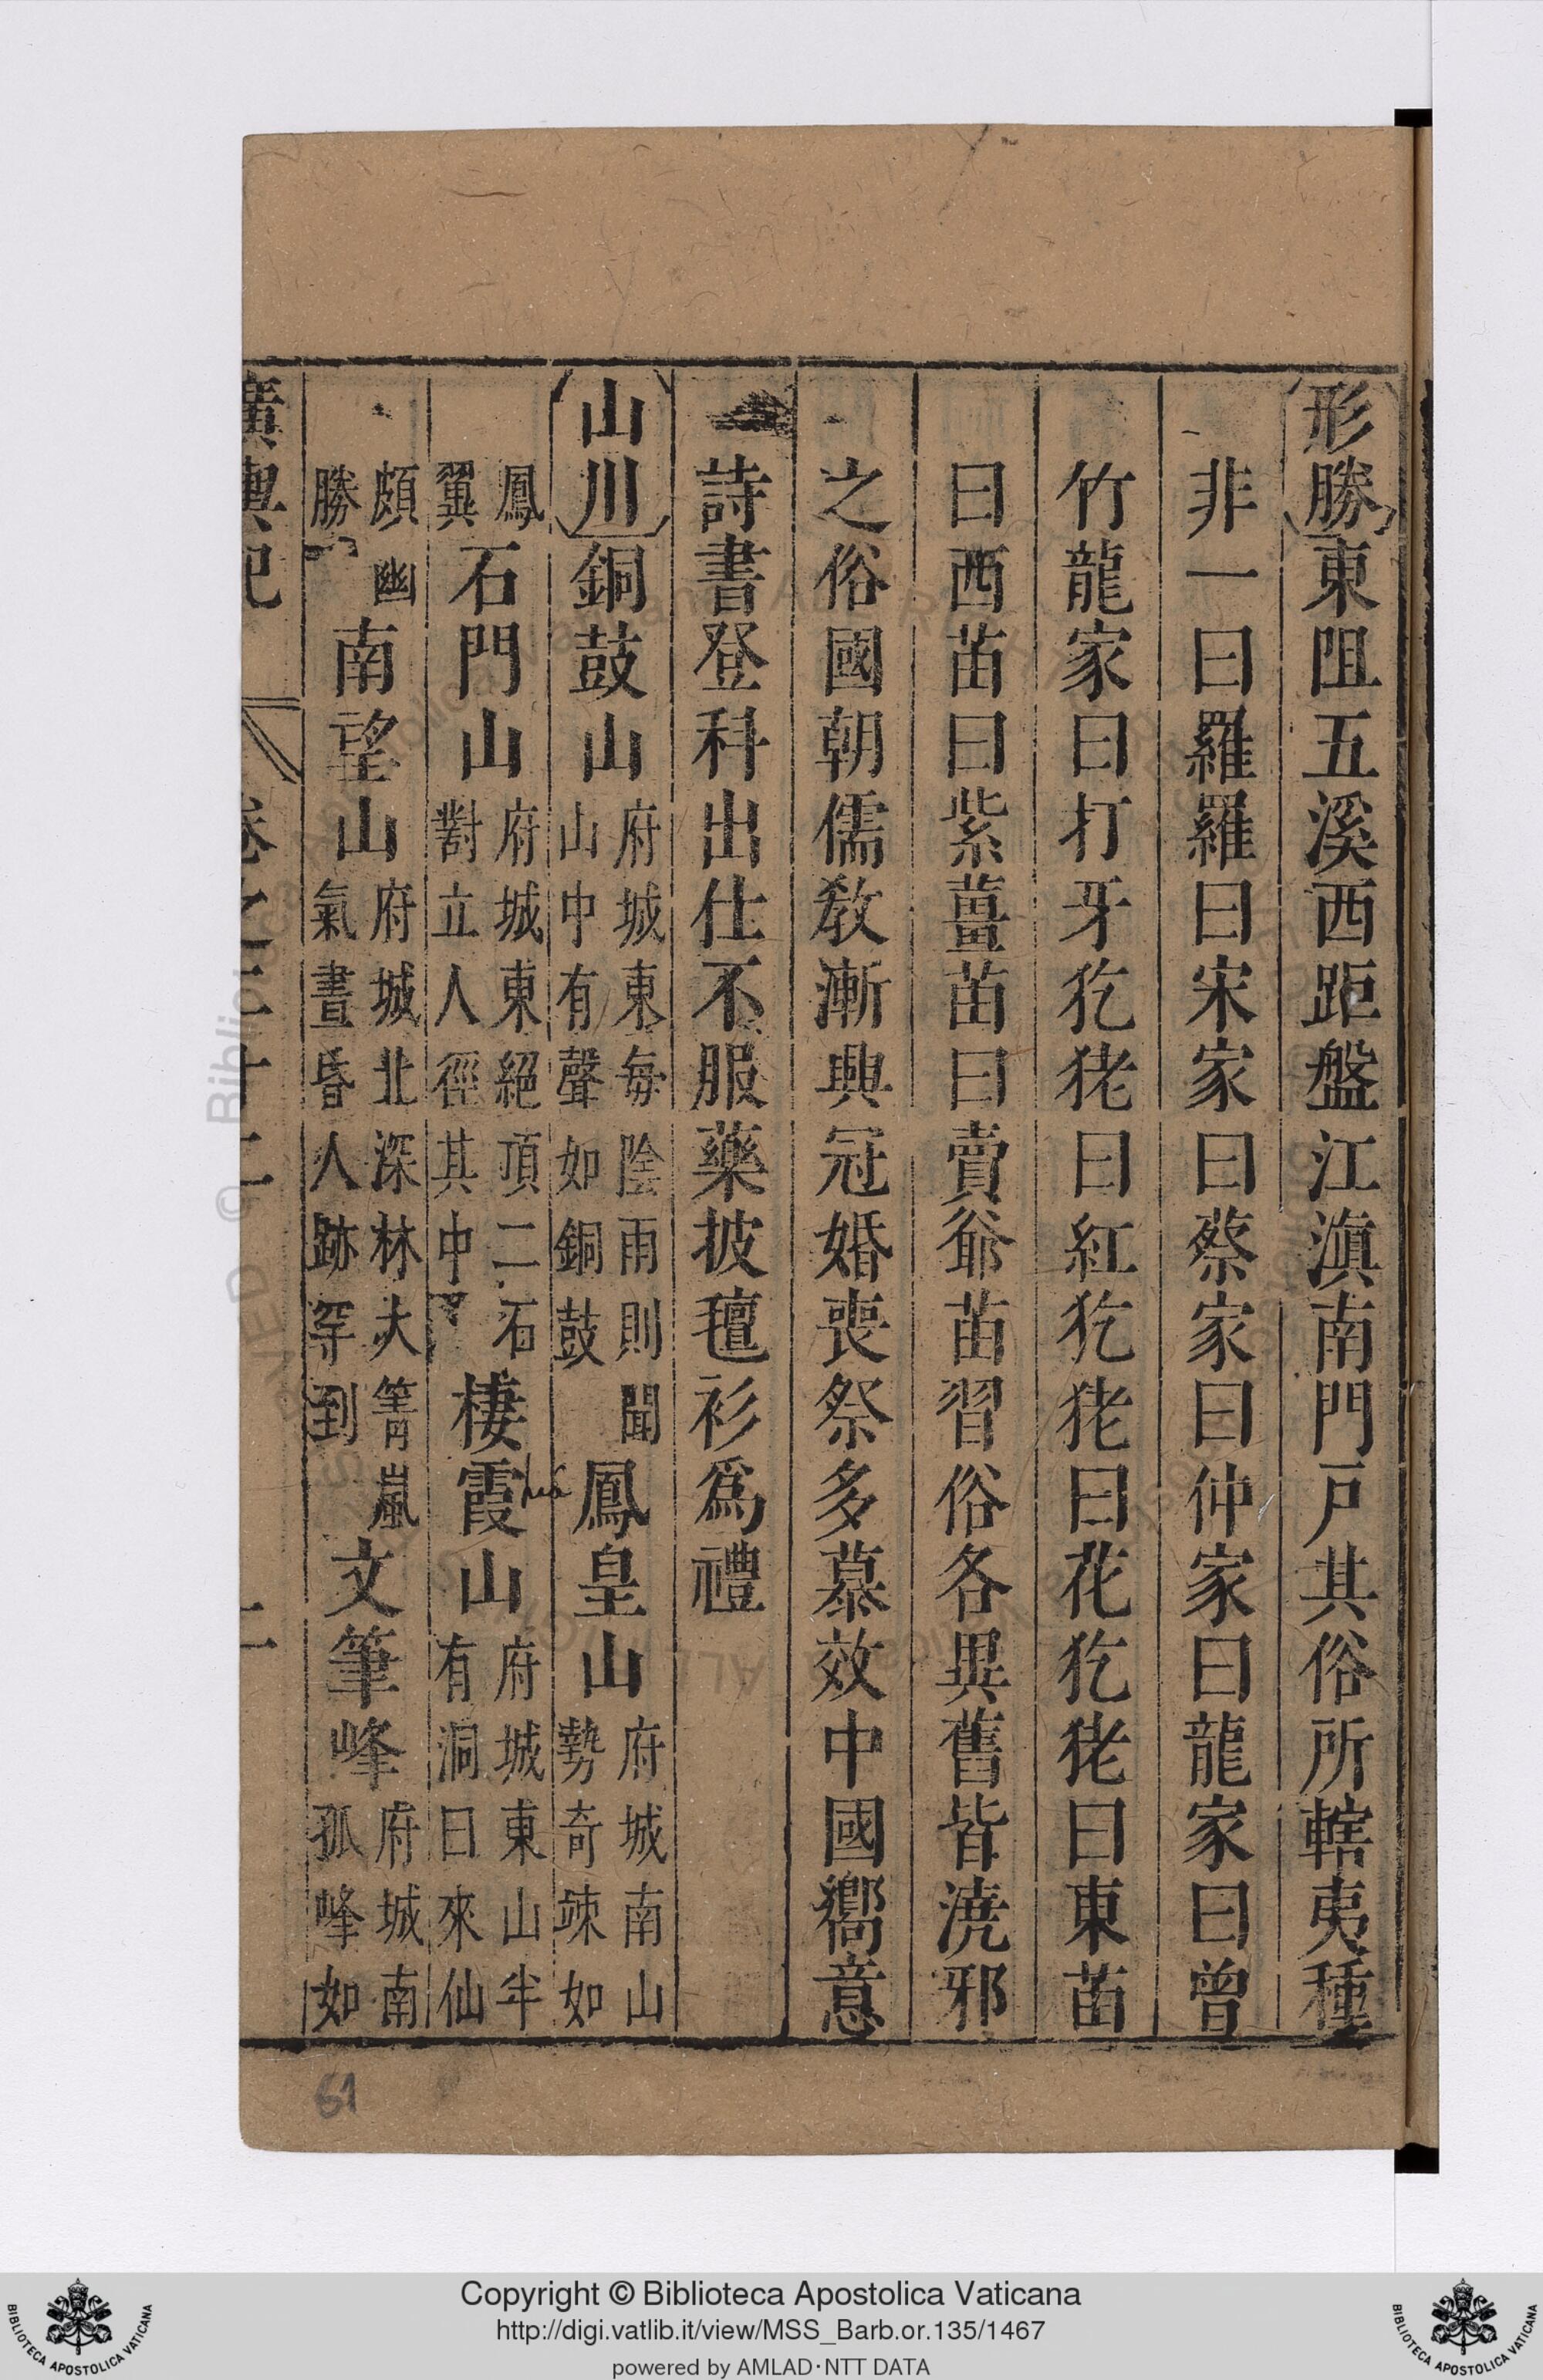 形勝東阻五溪西距盤江滇南門戶其俗所轄夷種
非一曰羅羅曰宋家曰蔡家曰仲家曰龍家曰曾
竹龍家曰打牙犵狫曰紅犵狫曰花犵狫曰東苗
曰西苗曰紫薑苗曰賣爺苗習俗各異舊皆澆邪
之俗國朝儒教漸興冠婚喪祭多慕效中國嚮意
詩書登科出仕不服藥披氊衫爲禮
山川銅鼓山府城東每陰雨則聞山中有聲如銅鼓鳳皇山府城南山勢奇竦如
鳳翼石門山府城東絕頂二石對立人徑其中棲霞山府城東山半有洞曰來仙
頗幽勝南望山府城北深林大箐嵐氣晝昏人跡罕到文筆峰府城南孤峰如
廣輿記 卷之二十二 二
61
Copyright © Biblioteca Apostolica Vaticana
http://digi.vatlib.it/view/MSS_Barb.or.135/1467
powered by AMLAD·NTT DATA
BIBLIOTECA APOSTOLICA VATICANA
BIBLIOTECA APOSTOLICA VATICANA